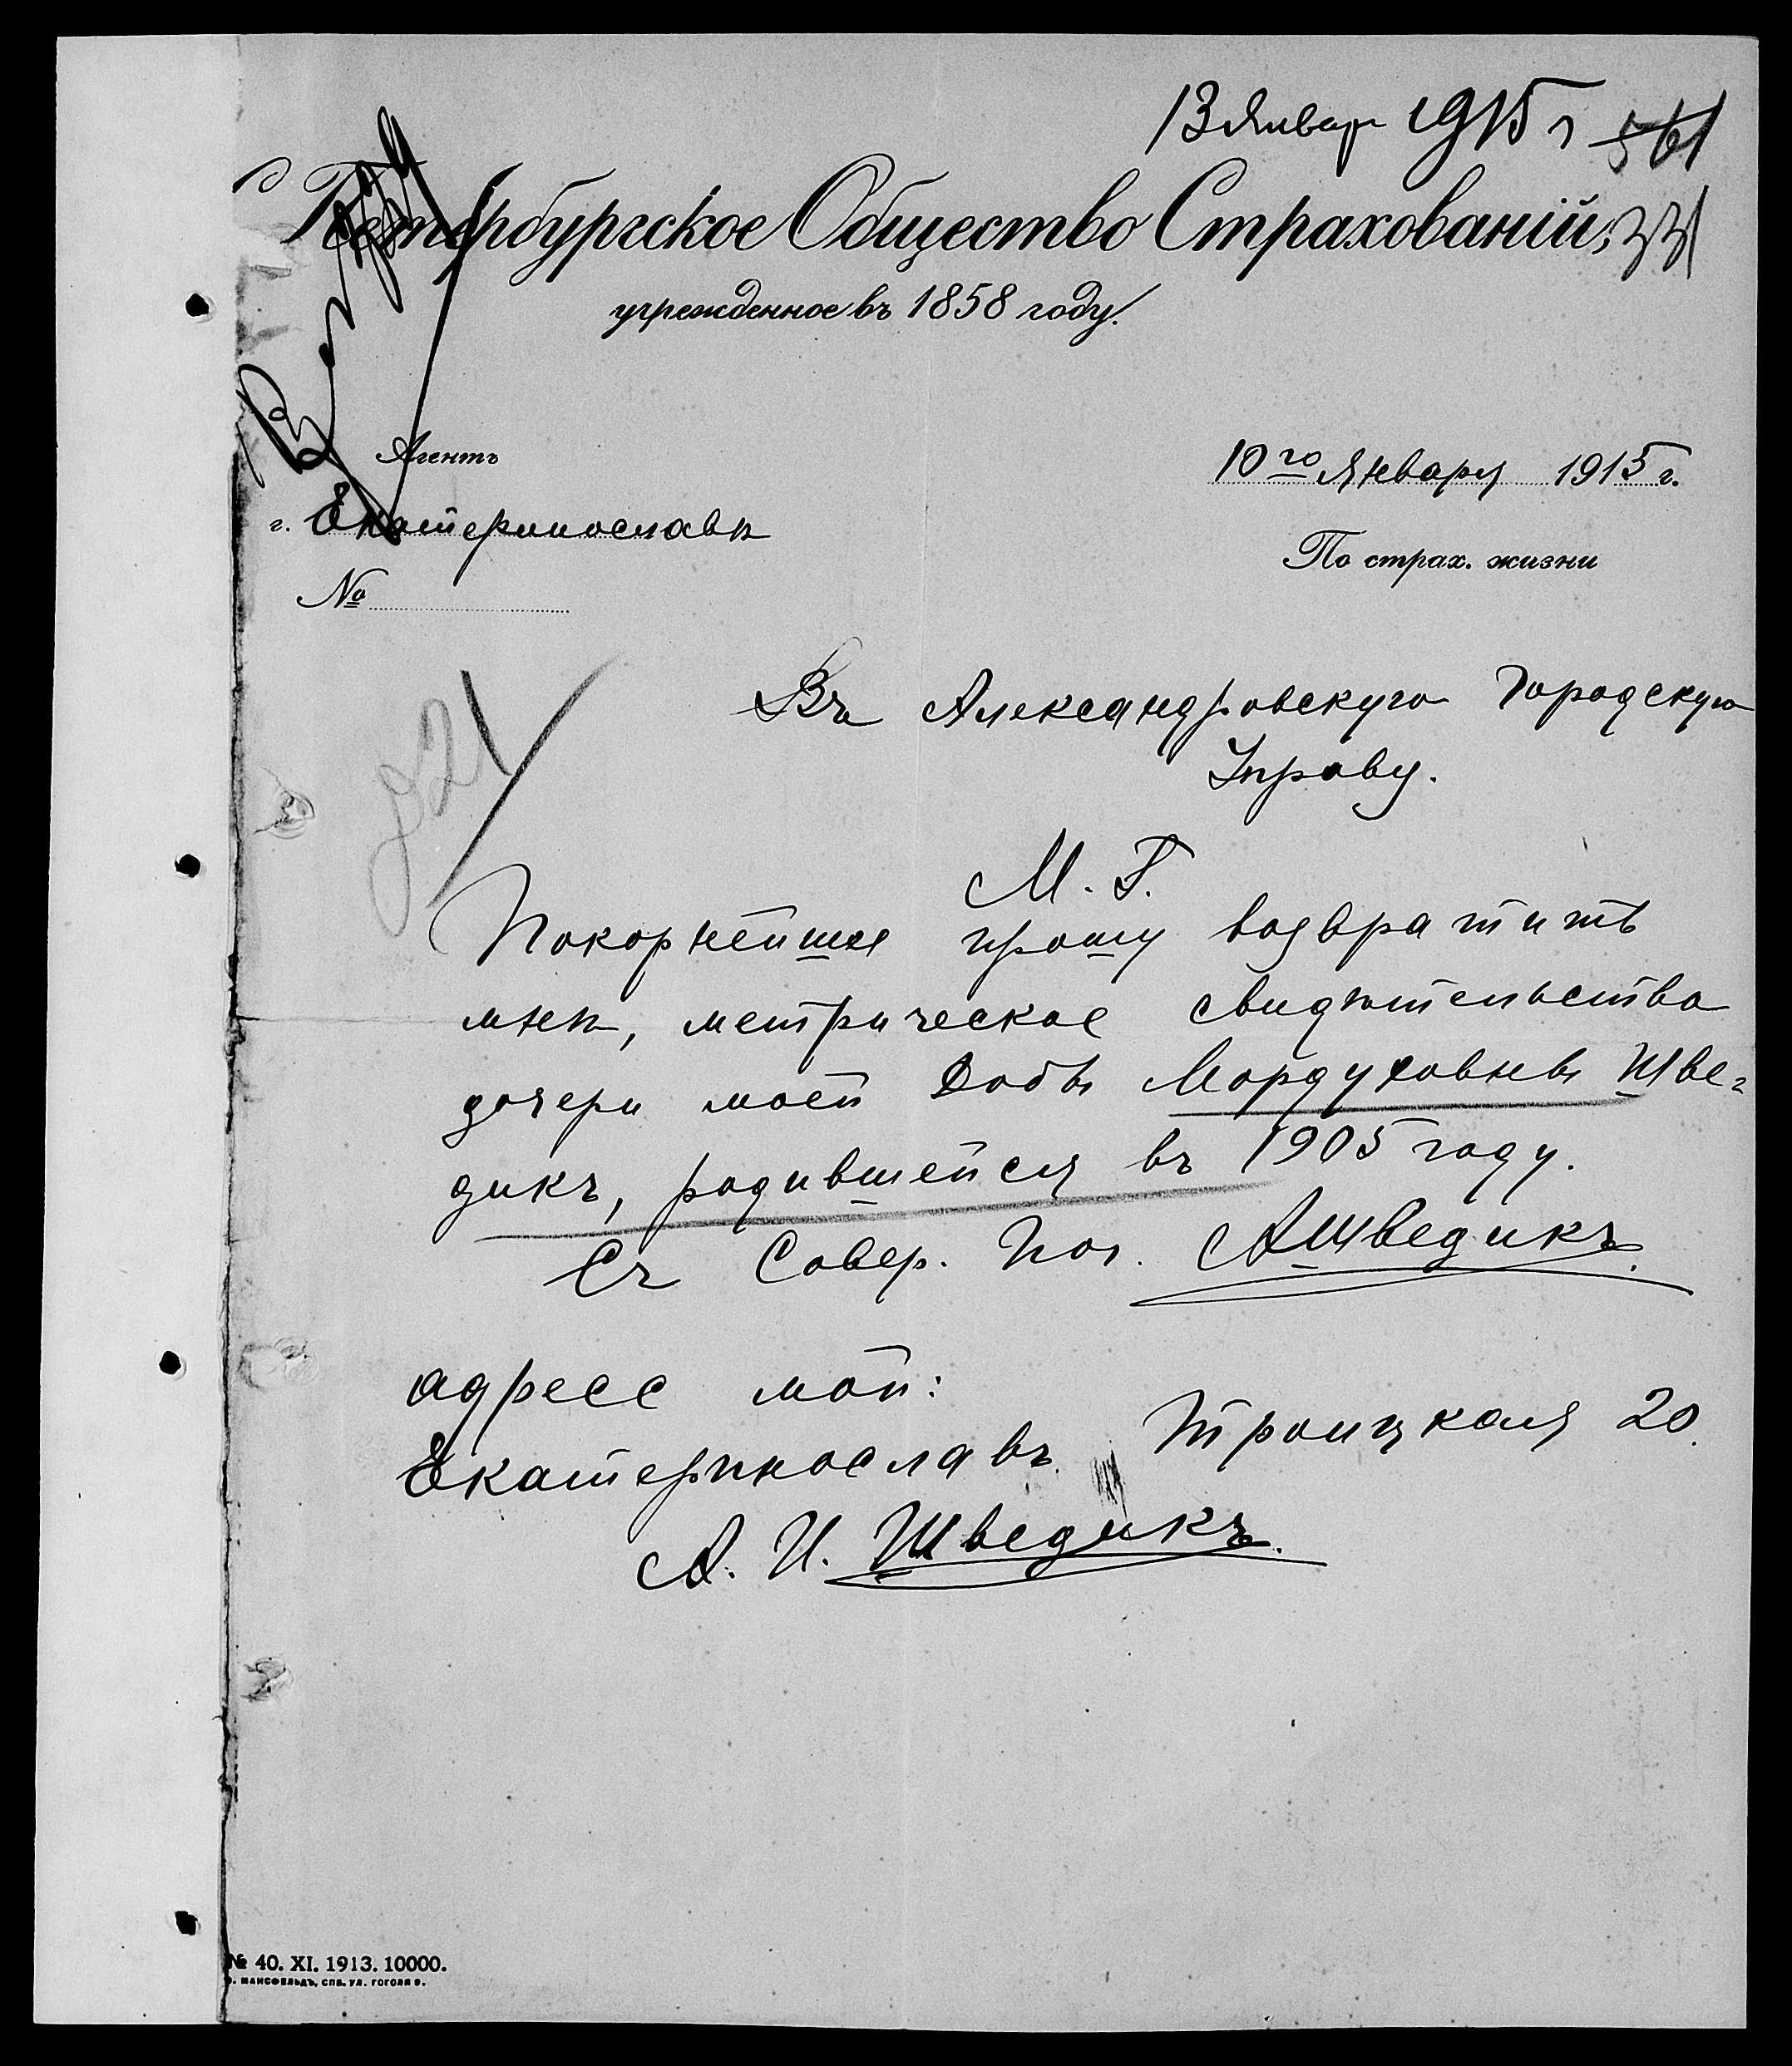 13 Январ 1915 г 561
Петербургское Общество Страхованій, 331
учрежденное въ 1858 году.
Агентъ
10го Января 1915 г.
г. Екатеринославѣ
По страх. жизни
№
Въ Александровскую Городскую
Управу.
М. Г.
Покорнѣйше прошу возвратить
мнѣ, метрическое свидѣтельство
дочери моей Добы Мордуховны Шве-
дикъ, родившейся въ 1905 году.
Съ Совер. Поч. АШведикъ.
адресс мой:
Екатеринославъ. Троицкая 20.
А. И. Шведикъ.
№ 40. XI. 1913. 10000.
МАНСФЕЛЬДЪ, СПБ. УЛ. ГОГОЛЯ 9.